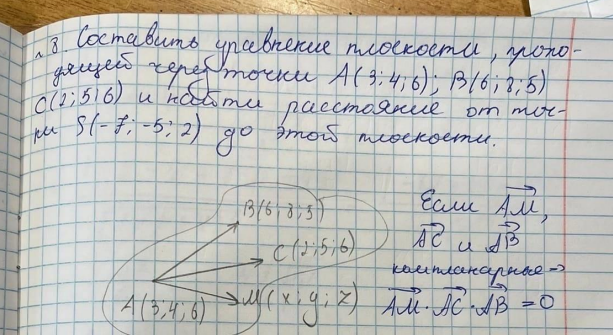 8. Составить уравнение плоскости, прохо-
дящей через точки A(3;4;6); B(6;8;5)
C(2;5;6) и найти расстояние от точ-
ки S(-7;-5;2) до этой плоскости.
B(6;8;5)
C(2;5;6)
A(3;4;6)
M(x;y;z)
Если AM,
AC и AB
компланарные =>
AM·AC·AB=0